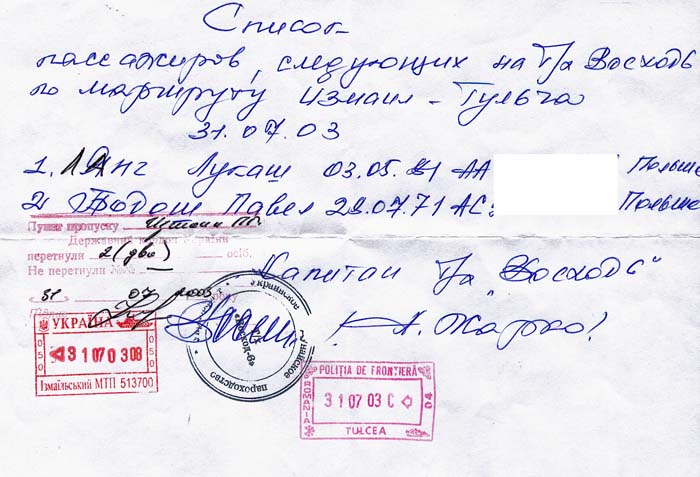 Список
пассажиров, следующих на т/х Восходъ
по маршруту Измаил - Тульча
31.07.03
1. Лукаш 03.05.81 АА Польша
2. Павел 29.07.71 АС Польша
Пункт пропуску Измаил
Державний кордон України
перетнули 2 (два) осіб.
Не перетнули —
31 07 2003 року
Капитан т/х "Восходъ"
А. Жарко
УКРАЇНА
050 31 07 03 08 050
Ізмаїльський МТП 513700
Українское Дунайское пароходство
POLIȚIA DE FRONTIERĂ
ROMANIA 31 07 03 C 04
TULCEA